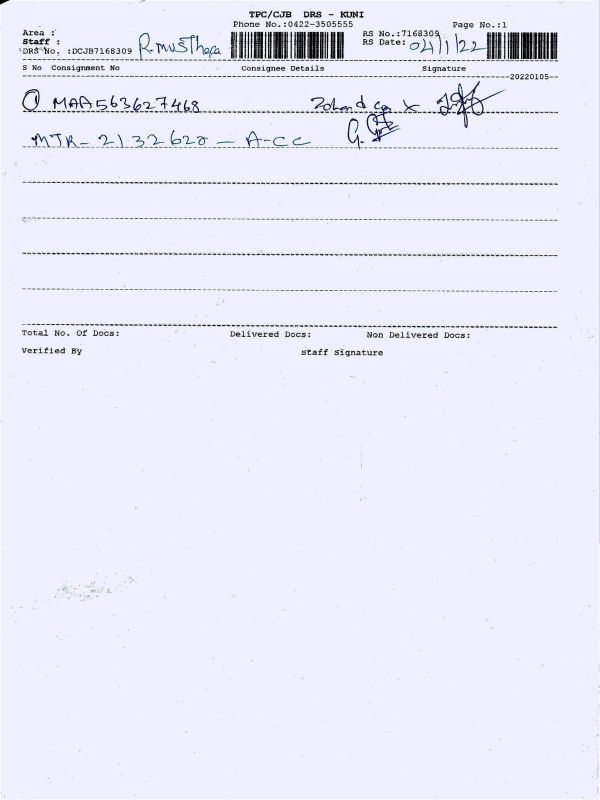 TPC/CJB DRS - KUNI
Phone No.:0422-3505555 Page No.:1
Area :
Staff : R. musthafa
DRS No. :DCJB7168309
RS No.:7168309
RS Date: 04/1/22
S No Consignment No Consignee Details Signature
20220105
1 MAA563627468
MTR-2132628 - A-CC
Total No. Of Docs: Delivered Docs: Non Delivered Docs:
Verified By Staff Signature